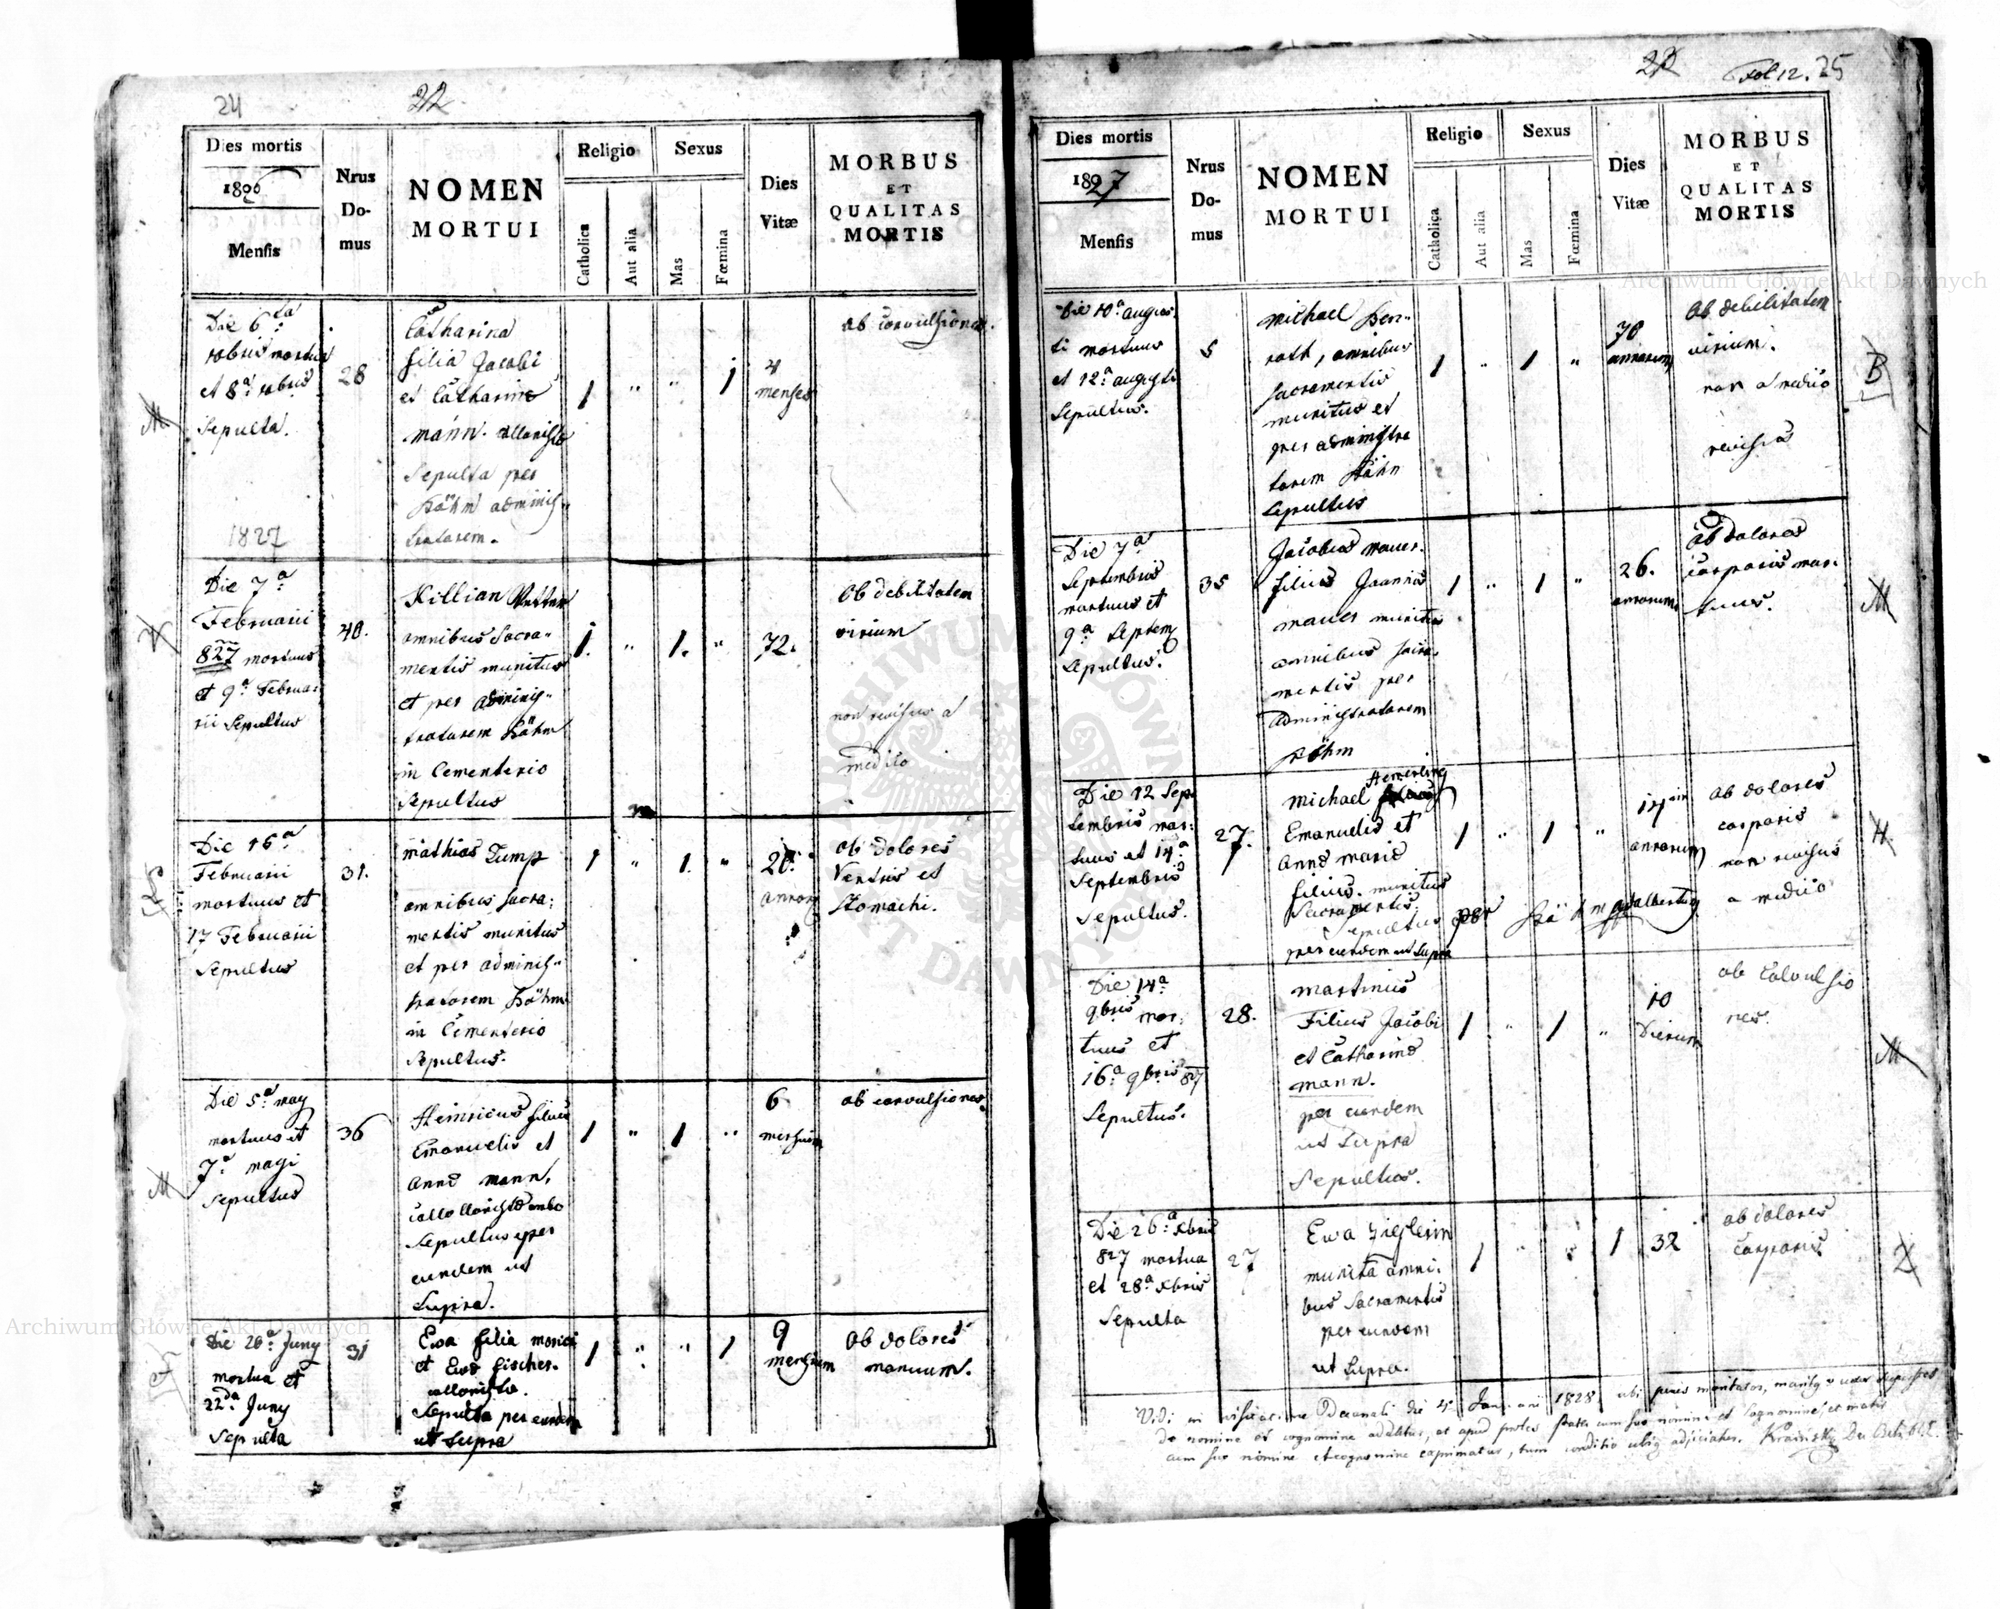 24
22
Dies mortis
1826
Mensis
Nrus
Do-
mus
NOMEN
MORTUI
Religio
Catholica
Aut alia
Sexus
Mas
Fœmina
Dies
Vitæ
MORBUS
ET
QUALITAS
MORTIS
Die 6ta
xbris mortua
et 8a xbris
Sepulta.
28
Catharina
filia Jacobi
et Catharine
Mann.
Sepulta per
Böhm adminis-
tratorem.
1
"
"
1
4
menses
ab convulsiones.
M
1827
Die 7a
Februarii
827 mortuus
et 9a Februa-
rii Sepultus
40.
Killian Vetter
omnibus Sacra-
mentis munitus
et per adminis-
tratorem Böhm
in Cementerio
Sepultus
1.
"
1.
"
72.
ab debilitatem
virium
non revisus a
medico
Die 16a
Februarii
mortuus et
17 Februarii
Sepultus
31.
Mathias Zump
omnibus Sacra:
mentis munitus
et per adminis-
tratorem Böhm
in Cementerio
Sepultus.
1
"
1.
"
annor
ab dolores
Ventris et
Stomachi.
Die 5a may
mortuus et
7a magi
Sepultus
36
Heinricus filius
Emanuelis et
Anne Mann,
Sepultus per
eundem ut
Supra.
1
"
1
"
6
mensium
ab convulsiones
M
Die 20a Juny
mortua et
22da Juny
Sepulta
31
Ewa filia
et Ewe Fischer.
Sepulta per eundem
ut Supra
1
"
"
1
9
mensium
ab dolores
manuum.
22
Fol 12.
25
Dies mortis
1827
Mensis
Nrus
Do-
mus
NOMEN
MORTUI
Religio
Catholica
Aut alia
Sexus
Mas
Fœmina
Dies
Vitæ
MORBUS
ET
QUALITAS
MORTIS
Die 10a augus
ti mortuus
et 12a augusti
Sepultus.
5
Michael Ben-
roth, omnibus
Sacramentis
munitus et
per administra
torem Böhm
Sepultus
1
"
1
"
70
annorum
ab debilitatem
virium.
non a medico
revisus
B
Die 7a
Septembris
mortuus et
9a Septem
Sepultus.
35
Jacobus Mauer.
filius Joannis
Mauer munitus
omnibus Sacra-
mentis per
administratorem
Böhm
1
"
1
"
26.
annorum
ab dolores
corporis mor-
tuus.
M
Die 12 Sep
tembris mor:
tuus et 14a
Septembris
Sepultus.
27.
Michael Hemerling
Emanuelis et
Anne Marie
filius. munitus
Sacramentis.
Sepultus per Böhm Adalbertus
per eundem ut Supra
1
"
1
"
annorum
ab dolores
corporis
non revisus
a medico
H
Die 14a
9bris mor:
tuus et
16a 9bris 827
Sepultus.
28.
Martinus
Filius Jacobi
et Catharine
Mann.
per eundem
ut Supra
Sepultus.
1
"
1
"
10
Dierum
ab convulsio
nes.
M
Die 26a xbris
827 mortua
et 28a xbris
Sepulta
27
Ewa Zieglerin
munita omni-
bus Sacramentis
per eundem
ut Supra.
1
"
"
1
32
ab dolores
corporis
Z
Vidi in visitatione Decanali die 4a Januarii 1828
de nomine et cognomine addatur, et apud proles pater cum suo nomine et cognomine, et mater
cum suo nomine et cognomine exprimatur, tum conditio ubiq adjiciatur.
Archiwum Główne Akt Dawnych
Archiwum Główne Akt Dawnych
ARCHIWUM GŁÓWNE AKT DAWNYCH